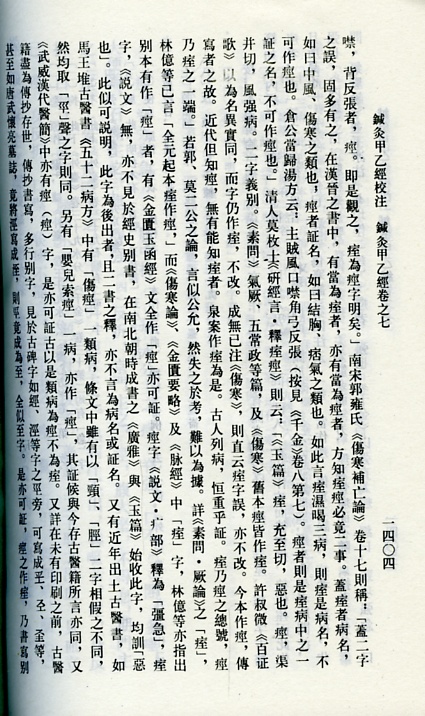 鍼灸甲乙經校注　鍼灸甲乙經卷之七
一四〇四
噤，背反張者，痙。即是觀之，痓為痙字明矣。」南宋郭雍氏《傷寒補亡論》卷十七則稱：「蓋二字
之誤，固多有之，在漢晉之書中，有當為痓者，亦有當為痙者，方知痓痙必竟二事。蓋痓者病名，
如曰中風、傷寒之類也，痙者証名，如曰結胸、痞氣之類也。如此言痓濕暍三病，則痓是病名，不
可作痙也。倉公當歸湯方云：主賊風口噤角弓反張（按見《千金》卷八第七）。痙者則是痓病中之一
証之名，不可作痓也。」清人莫枚士《研經言·釋痓痙》則云：「《玉篇》痓，充至切，惡也。痙，渠
井切，風强病。二字義別。《素問》氣厥、五常政等篇，及《傷寒》舊本痙皆作痓。許叔微《百証
歌》以為名異實同，而字仍作痓，不改。成無已注《傷寒》，則直云痓字誤，亦不改。今本作痙，傳
寫者之故。近代但知痙，無有能知痓者。泉案作痓為是。古人列病，恒重乎証。痓乃痙之總號，痙
乃痓之一端。」若郭、莫二公之論，言似公允，然失之於考，難以為據。詳《素問·厥論》之「痓」，
林億等已言「全元起本痓作痙」，而《傷寒論》、《金匱要略》及《脉經》中「痓」字，林億等亦指出
別本有作「痙」者，有《金匱玉函經》文全作「痙」亦可証。痙字《說文·疒部》釋為「彊急」，痓
字，《說文》無，亦不見於經史別書，在南北朝時成書之《廣雅》與《玉篇》始收此字，均訓「惡
也」。此似可說明，此字為後出者，且二書之釋，亦不言為病名或証名。又有近年出土古醫書，如
馬王堆古醫書《五十二病方》中有「傷痙」一類病，條文中雖有以「頸」「脛」二字相假之不同，
然均取「巠」聲之字則同。另有「嬰兒索痙」一病，亦作「痙」，其証候與今存古醫籍所言亦同，又
《武威漢代醫簡》中亦有痙（痙）字，是亦可証古以是類病為痙不為痓。又詳在未有印刷之前，古醫
籍盡為傳抄存世，傳抄書寫，多行別字，見於古碑字如經、涇等字之巠旁，可寫成
甚至如唐武懷亮墓誌，竟將涇寫成洷，則巠竟成為至，全似至字。是亦可証，痙之作痓，乃書寫別